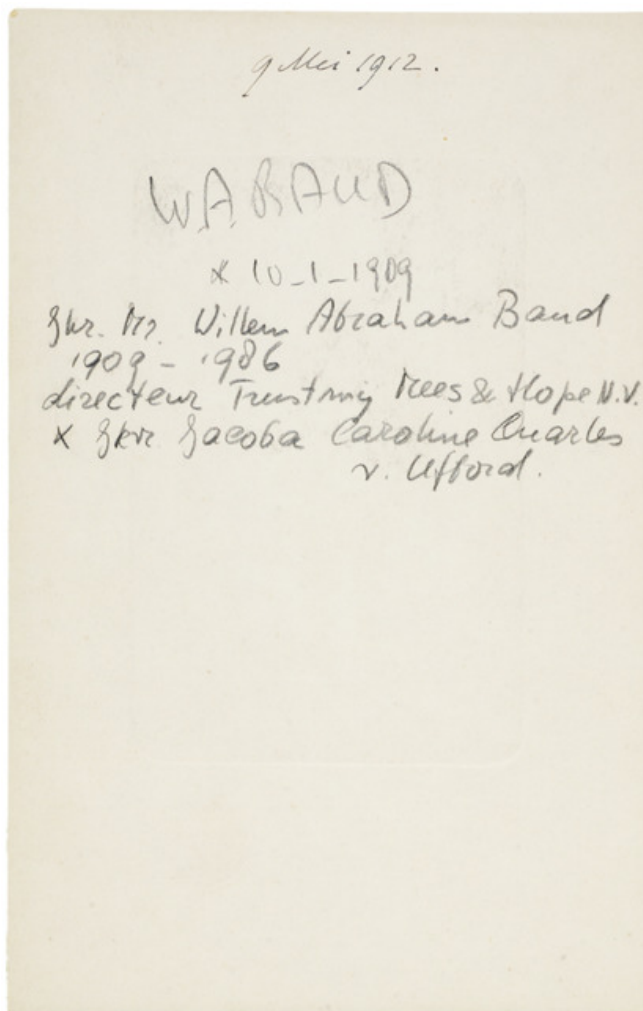 9 Mei 1912.
W.A. BAUD
* 10-1-1909
Jhr. Mr. Willem Abraham Baud
1909 - 1986
directeur Trustmij Mees & Hope N.V.
x Jkvr Jacoba Caroline Quarles
v. Ufford.